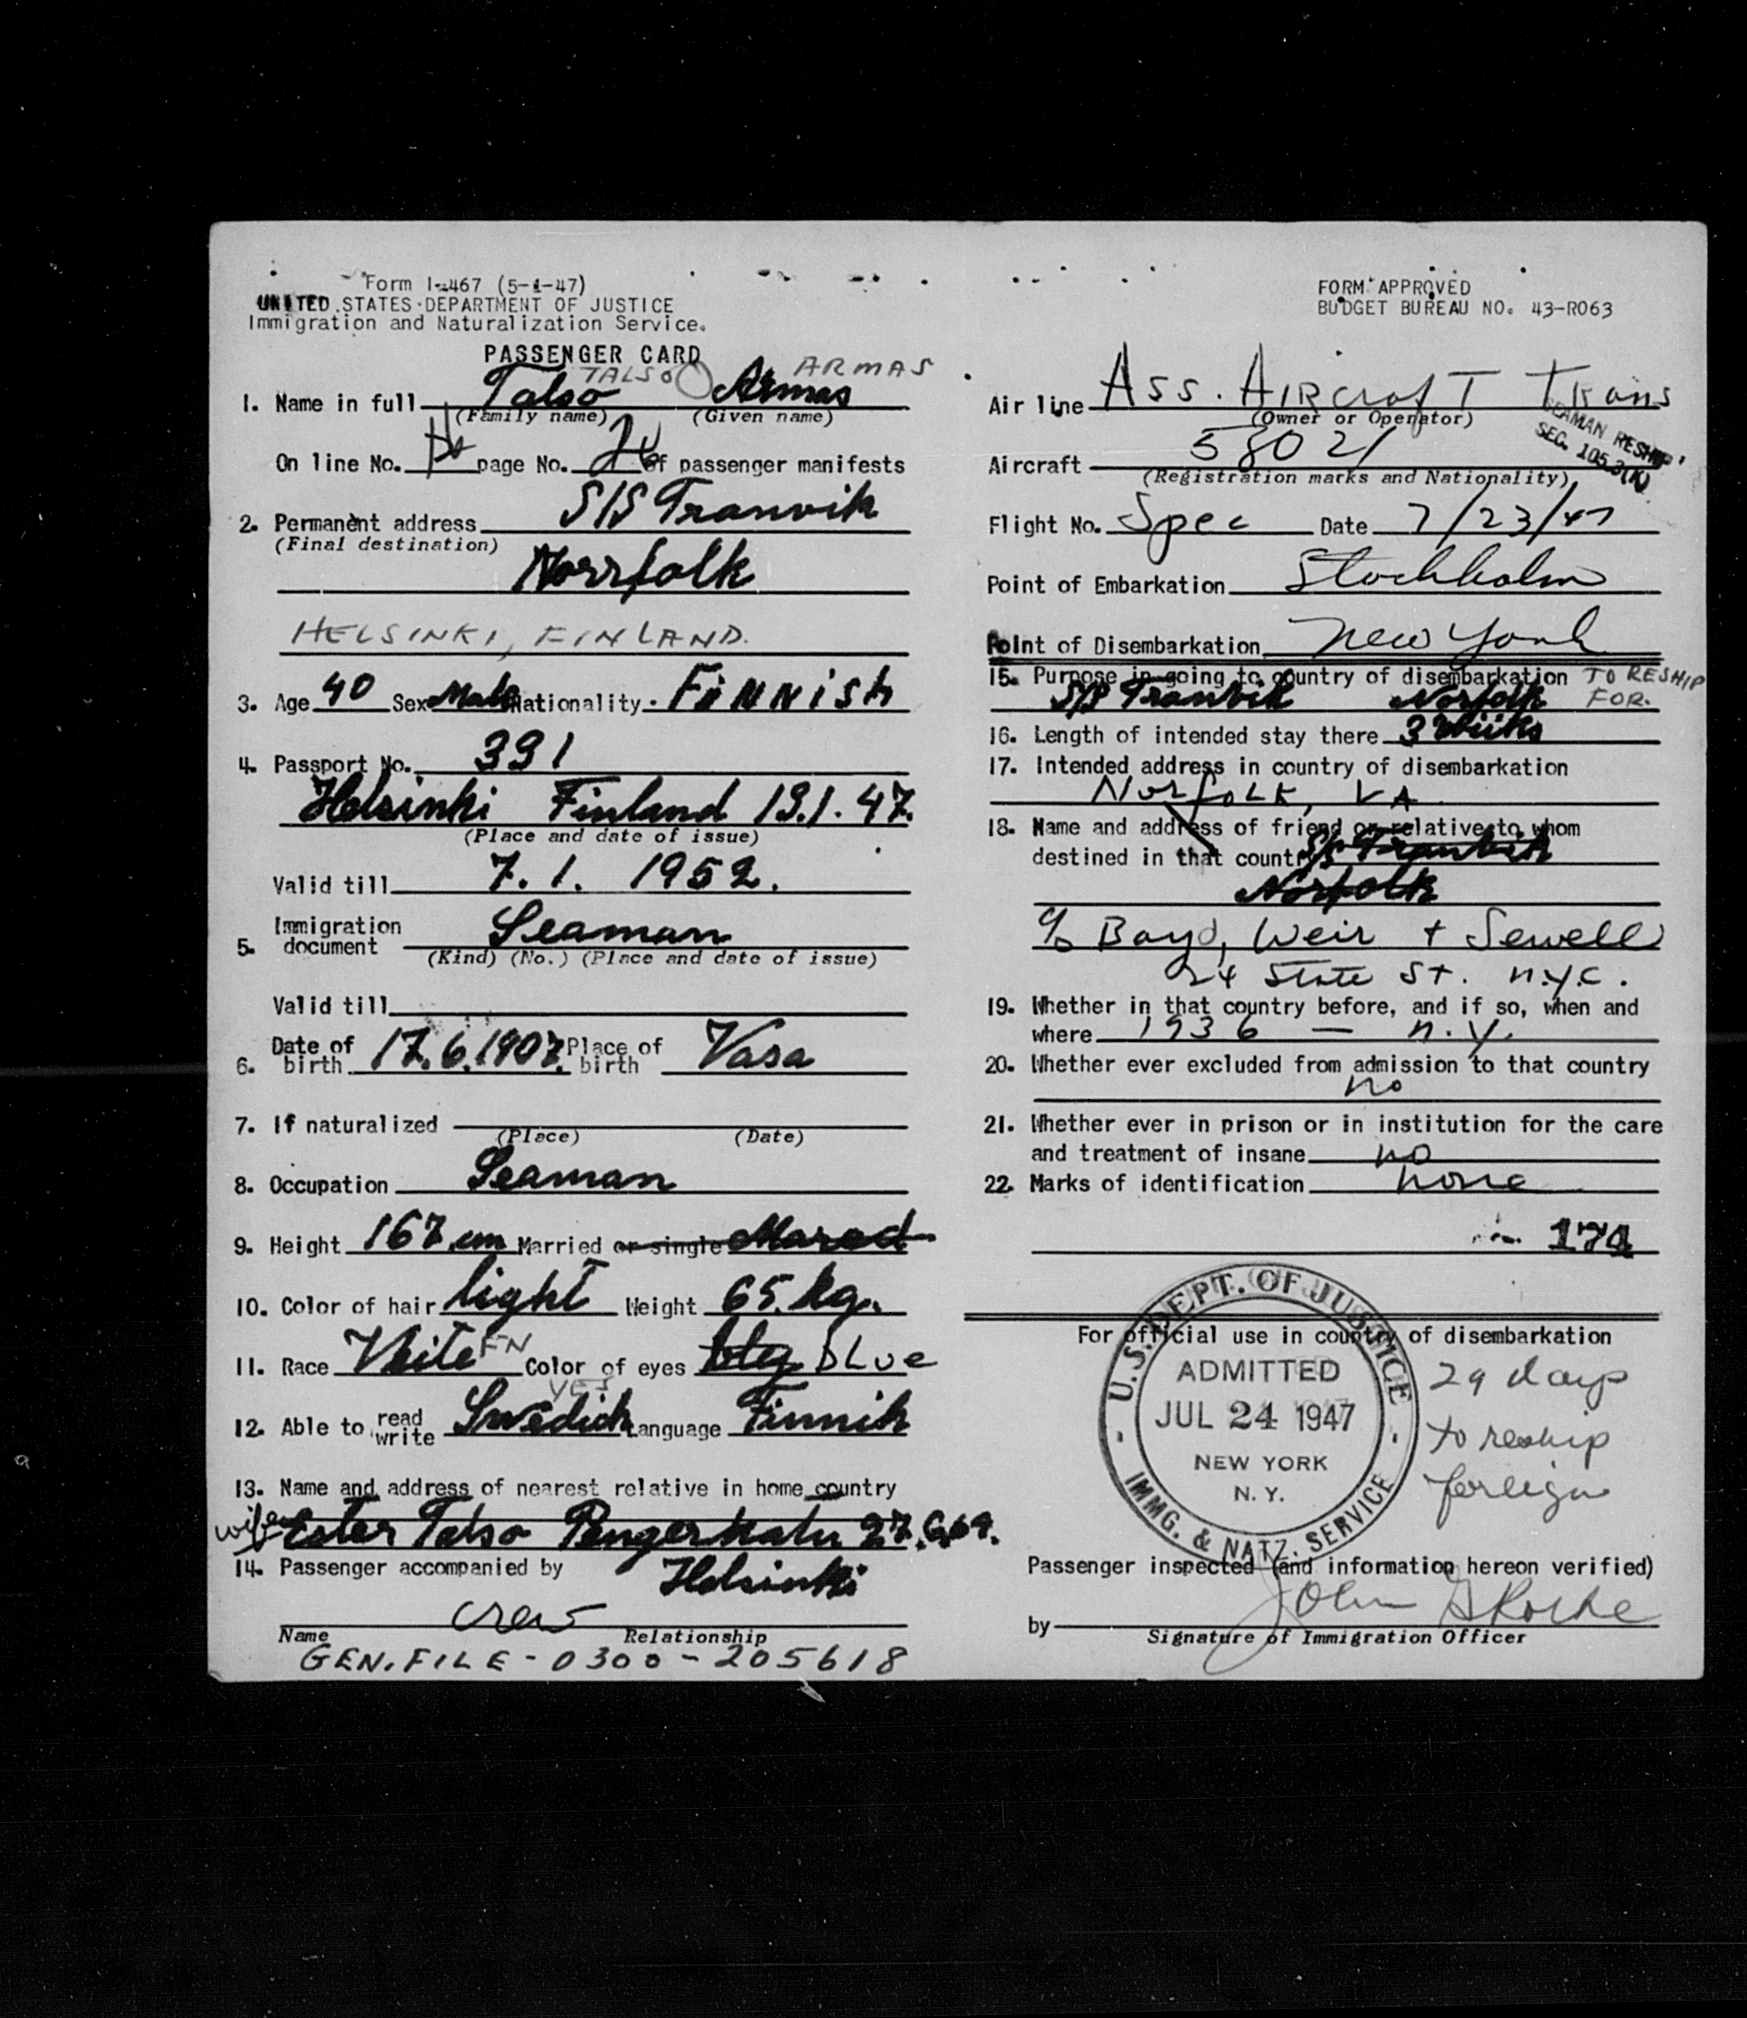 Form I-467 (5-1-47)
UNITED STATES DEPARTMENT OF JUSTICE
Immigration and Naturalization Service.
PASSENGER CARD
TALSO ARMAS
1. Name in full Talso Armas
(Family name) (Given name)
On line No. page No. of passenger manifests
2. Permanent address S/S Tranvik
(Final destination)
Norrfolk
HELSINKI, FINLAND.
3. Age 40 Sex Male Nationality FiNNiSh
4. Passport No. 391
Helsinki Finland 19.1.47.
(Place and date of issue)
Valid till 7. 1. 1952.
5. Immigration document Seaman
(Kind) (No.) (Place and date of issue)
Valid till
6. Date of birth 17.6.1907. Place of birth Vasa
7. If naturalized
(Place) (Date)
8. Occupation Seaman
9. Height 167 cm Married or single Mared
10. Color of hair light Weight 65. kg.
11. Race White FN Color of eyes blue
YES
12. Able to read write Swedich Language Finnih
13. Name and address of nearest relative in home country
wife Ester Talso Pengerkatu 27. G.69.
14. Passenger accompanied by Helsinki
crew
Name Relationship
GEN. FILE - 0300 - 205618
FORM APPROVED
BUDGET BUREAU NO. 43-R063
Air line Ass. AIRcrafT Trans
(Owner or Operator)
SEAMAN RESHIP.
SEC. 105.3(K)
Aircraft 58021
(Registration marks and Nationality)
Flight No. Spec Date 7/23/47
Point of Embarkation Stockholm
Point of Disembarkation New York
15. Purpose in going to country of disembarkation TO RESHIP
S/S Tranvik Norfolk FOR.
16. Length of intended stay there 3 Wiiks
17. Intended address in country of disembarkation
Norfolk, VA
18. Name and address of friend or relative to whom
destined in that country S/S Tranvik
Norfolk
c/o Boyd, Weir + Sewell
24 State St. N.Y.C.
19. Whether in that country before, and if so, when and
where 1936 — N.Y.
20. Whether ever excluded from admission to that country
no
21. Whether ever in prison or in institution for the care
and treatment of insane no
22. Marks of identification none
174
For official use in country of disembarkation
U.S. DEPT. OF JUSTICE
ADMITTED
JUL 24 1947
NEW YORK
N. Y.
IMMG. & NATZ. SERVICE
29 days
to reship
foreign
Passenger inspected (and information hereon verified)
by John
Signature of Immigration Officer